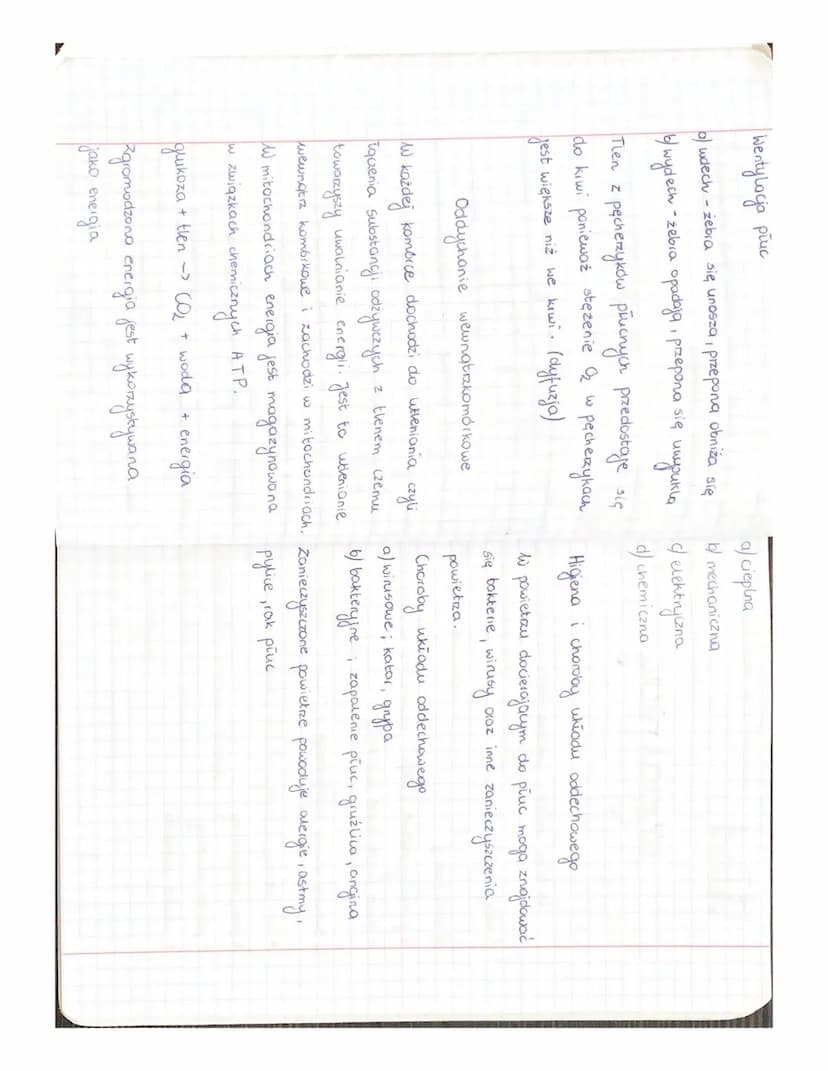 Wentylacja płuc
a) wdech - żebra się unoszą, przepona obniża się
b) wydech - żebra opadają, przepona się uwypukla
Tlen z pęcherzyków płucnych przedostaje się
do krwi ponieważ stężenie O₂ w pęcherzykach
jest większe niż we krwi. (dyfuzja)
Oddychanie wewnątrzkomórkowe
W każdej komórce dochodzi do utleniania czyli
łączenia substancji odżywczych z tlenem czemu
towarzyszy uwalnianie energii. Jest to utlenianie
wewnątrz komórkowe i zachodzi w mitochondriach.
W mitochondriach energia jest magazynowana
w związkach chemicznych ATP.
glukoza + tlen → CO₂ + woda + energia
Zgromadzona energia jest wykorzystywana
jako energia
a) cieplna
b) mechaniczna
c) elektryczna
d) chemiczna
Higiena i choroby układu oddechowego
W powietrzu docierającym do płuc mogą znajdować
się bakterie, wirusy oraz inne zanieczyszczenia
powietrza.
Choroby układu oddechowego
a) wirusowe; katar, grypa
b) bakteryjne; zapalenie płuc, gruźlica, angina
Zanieczyszczone powietrze powoduje alergie, astmy,
pylice, rak płuc